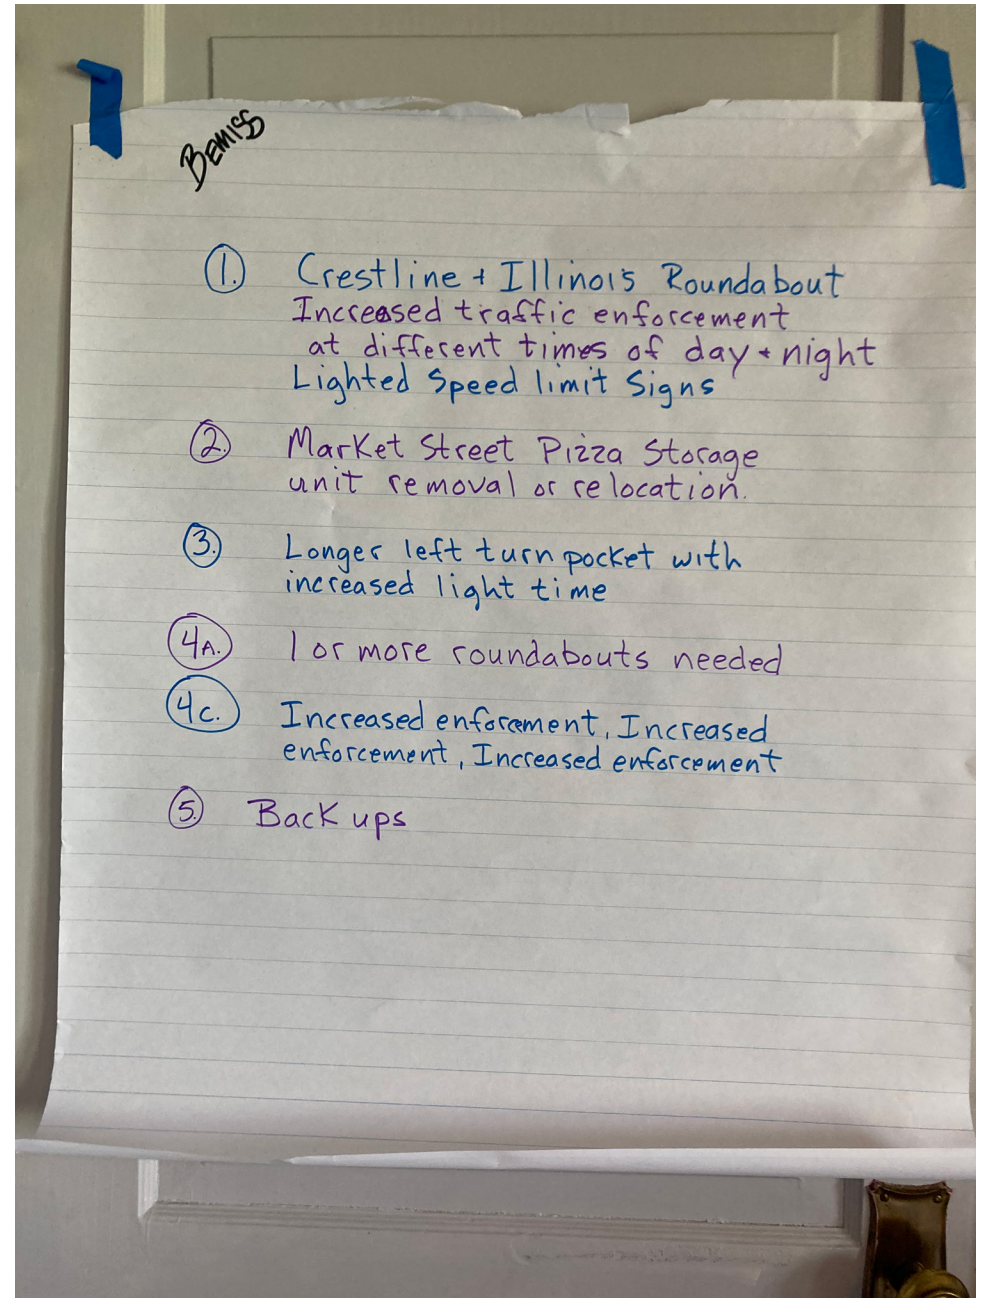 Bemiss
1. Crestline + Illinois Roundabout
Increased traffic enforcement
at different times of day + night
Lighted Speed limit Signs
2. Market Street Pizza Storage
unit removal or relocation.
3. Longer left turn pocket with
increased light time
4A. 1 or more roundabouts needed
4C. Increased enforcement, Increased
enforcement, Increased enforcement
5. Back ups